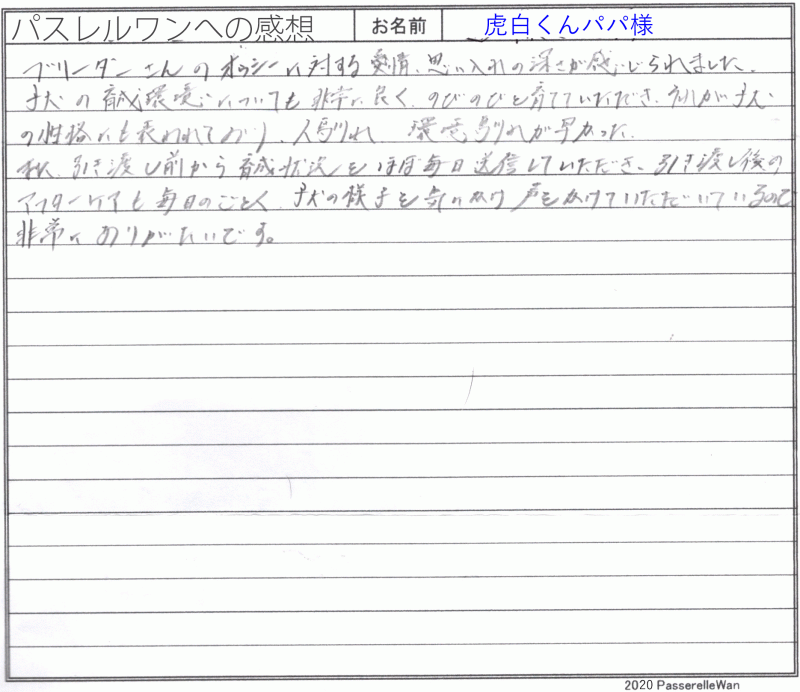 パスレルワンへの感想 お名前 虎白くんパパ様
ブリーダーさんのポッシーに対する愛情、思い入れの深さが感じられました。
子犬の育成環境についても非常に良く、のびのびと育てていただき、それが子犬
の性格にも表われており、人馴れ 環境馴れが早かった。
又、引き渡し前から育成状況をほぼ毎日送信していただき、引き渡し後の
アフターケアも毎日のごとく、子犬の様子を気にかけ声をかけていただいているので
非常にありがたいです。
2020 PasserelleWan